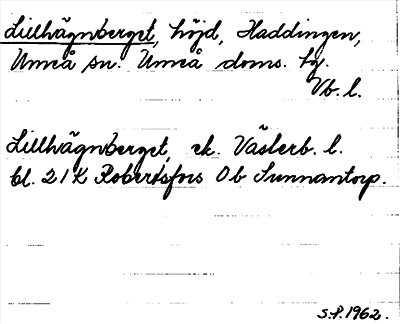 Lillhägnberget, höjd, Haddingen,
Umeå sn. Umeå doms. tg.
Vb. l.
Lillhägnberget, ek. Västerb. l.
bl. 21K Robertsfors 0b Sunnantorp.
S.P. 1962.